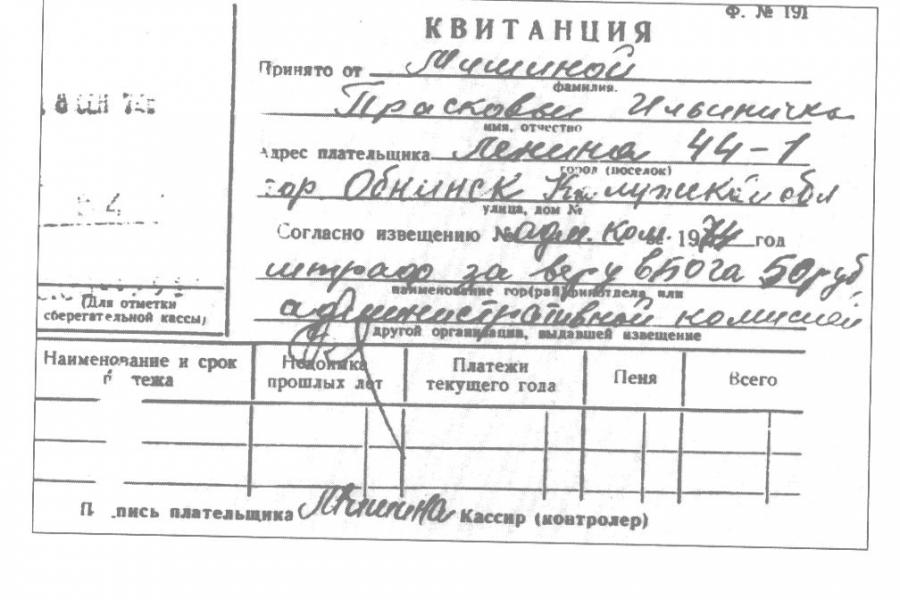 Ф. № 191
КВИТАНЦИЯ
Принято от Мишиной
фамилия.
Прасковьи Ильинична
имя, отчество
Адрес плательщика Ленина 44-1
город (поселок)
гор Обнинск Калужской обл
улица, дом №
Согласно извещению № адм. ком. 1974 год
штраф за веру в Бога 50 руб
наименование гор(рай)финотдела или
административной комиссией
другой организации, выдавшей извещение
8 СЕН 74
(Для отметки
сберегательной кассы)
Наименование и срок
тежа
Недоимка
прошлых лет
Платежи
текущего года
Пеня
Всего
П пись плательщика Мишина Кассир (контролер)